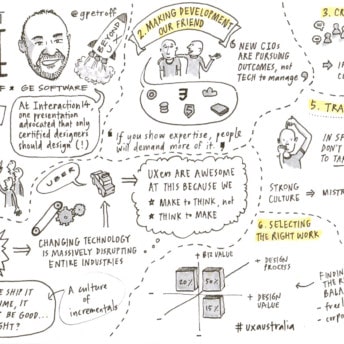 @gpetroff
BEYOND
GE SOFTWARE
At Interaction 14
one presentation
advocated that only
certified designers
should design (!)
2. MAKING DEVELOPMENT
OUR FRIEND
NEW CIOs
ARE PURSUING
OUTCOMES, not
TECH to manage
"If you show expertise, people
will demand more of it."
3.
5. TRA
IN
DON'T
TO
STRONG
CULTURE → MISTR
UBER
UXers ARE AWESOME
AT THIS BECAUSE WE
★ MAKE to THINK, not
★ THINK to MAKE
→ CHANGING TECHNOLOGY
IS MASSIVELY DISRUPTING
ENTIRE INDUSTRIES
SHIP IT
BE GOOD...
A culture
of
incrementals
6. SELECTING
THE RIGHT WORK
+ BIZ VALUE
+ DESIGN
PROCESS
20%
50%
15%
+ DESIGN
VALUE
#uxaustralia
FINDING
THE R
BALA
- free
- corpo